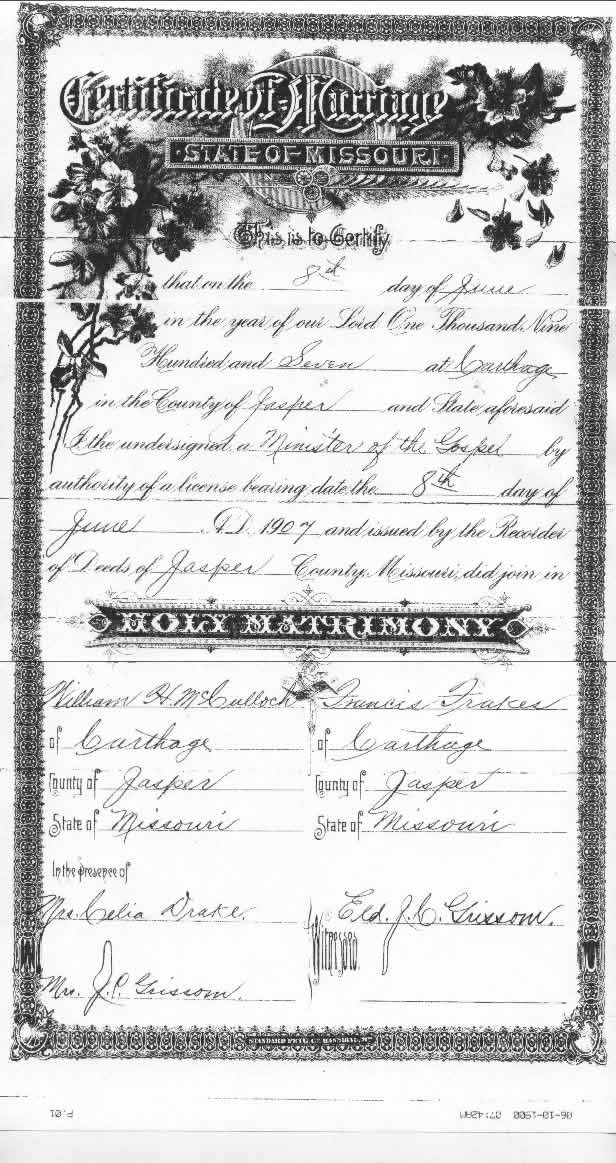 Certificate of Marriage
STATE OF MISSOURI
This is to Certify
that on the 8th day of June
in the year of our Lord One Thousand Nine
Hundred and Seven at Carthage
in the County of Jasper and State aforesaid
I the undersigned a Minister of the Gospel by
authority of a license bearing date the 8th day of
June A.D. 1907 and issued by the Recorder
of Deeds of Jasper County, Missouri, did join in
HOLY MATRIMONY
William H. McCulloch Francis Frakes
of Carthage of Carthage
County of Jasper County of Jasper
State of Missouri State of Missouri
In the presence of
Mrs. Celia Drake. Eld. J. C. Grissom.
Witnesses
Mrs. J. C. Grissom.
STANDARD PRTG. CO. HANNIBAL, MO
P.01 06-10-1900 07:42AM